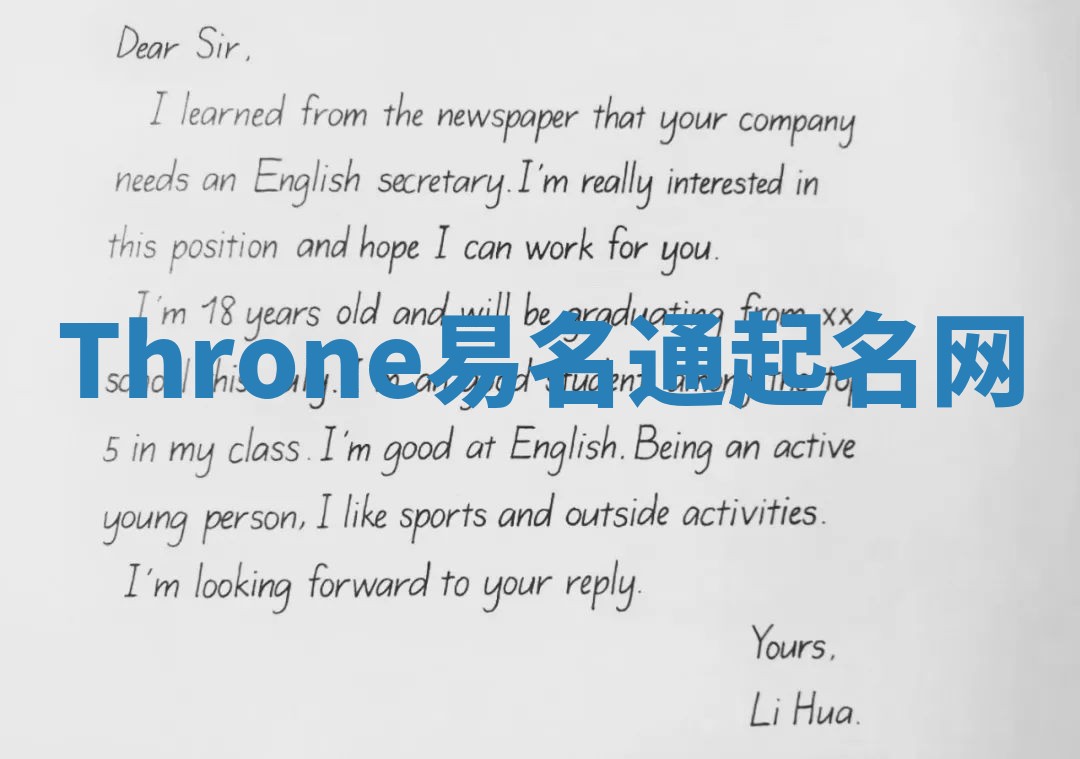 Dear Sir,
I learned from the newspaper that your company
needs an English secretary. I'm really interested in
this position and hope I can work for you.
I'm 18 years old and will be graduating from xx
Throne易名通起名网
school this July. I'm a good student among the top
5 in my class. I'm good at English. Being an active
young person, I like sports and outside activities.
I'm looking forward to your reply.
Yours,
Li Hua.